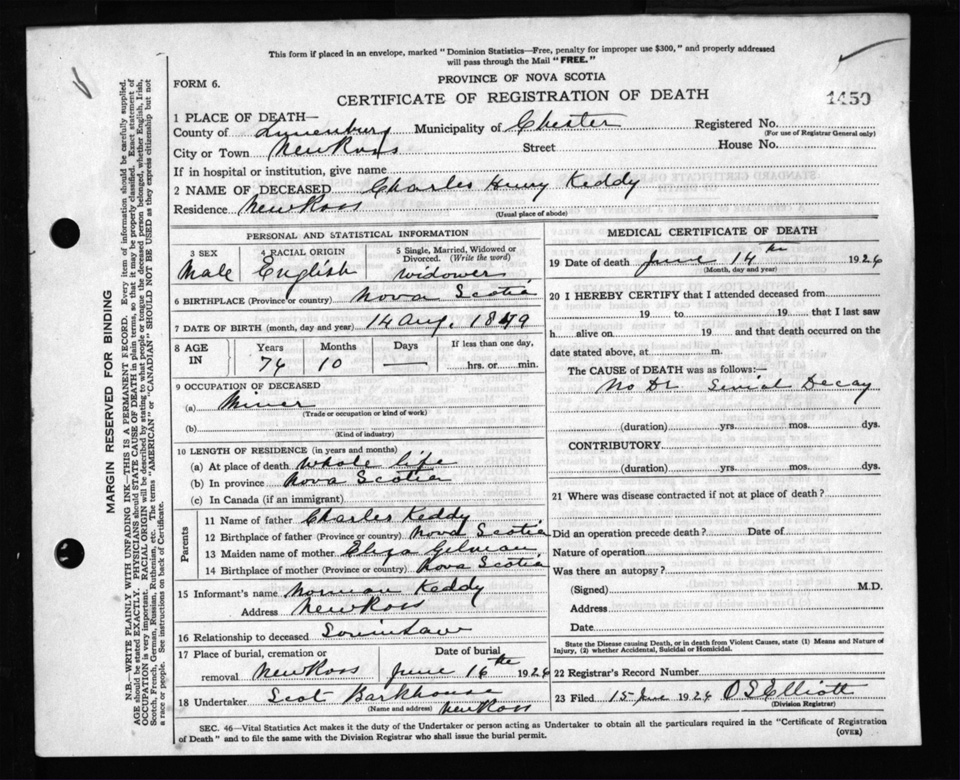 This form if placed in an envelope, marked "Dominion Statistics—Free, penalty for improper use $300," and properly addressed
will pass through the Mail "FREE."
FORM 6.
PROVINCE OF NOVA SCOTIA
CERTIFICATE OF REGISTRATION OF DEATH
1450
1 PLACE OF DEATH—
County of Lunenburg Municipality of Chester Registered No.
(For use of Registrar General only)
City or Town New Ross Street House No.
If in hospital or institution, give name
2 NAME OF DECEASED Charles Henry Keddy
Residence New Ross
(Usual place of abode)
PERSONAL AND STATISTICAL INFORMATION
3 SEX
Male
4 RACIAL ORIGIN
English
5 Single, Married, Widowed or
Divorced. (Write the word)
widower
6 BIRTHPLACE (Province or country) Nova Scotia
7 DATE OF BIRTH (month, day and year) 14 Aug, 1849
8 AGE
IN
Years
76
Months
10
Days
—
If less than one day,
hrs. or min.
9 OCCUPATION OF DECEASED
(a) Miner
(Trade or occupation or kind of work)
(b)
(Kind of industry)
10 LENGTH OF RESIDENCE (in years and months)
(a) At place of death whole life
(b) In province Nova Scotia
(c) In Canada (if an immigrant)
Parents
11 Name of father Charles Keddy
12 Birthplace of father (Province or country) Nova Scotia
13 Maiden name of mother Eliza Gilman
14 Birthplace of mother (Province or country) Nova Scotia
15 Informant's name Norman Keddy
Address New Ross
16 Relationship to deceased Soninlaw
17 Place of burial, cremation or
removal New Ross
Date of burial
June 16th 1926
18 Undertaker Scot Barkhouse
(Name and address) New Ross
MEDICAL CERTIFICATE OF DEATH
19 Date of death June 14th 1926
(Month, day and year)
20 I HEREBY CERTIFY that I attended deceased from
19 to 19 that I last saw
h alive on 19 and that death occurred on the
date stated above, at m.
The CAUSE of DEATH was as follows:—
No Dr Senial Decay
(duration) yrs. mos. dys.
CONTRIBUTORY
(duration) yrs. mos. dys.
21 Where was disease contracted if not at place of death?
Did an operation precede death? Date of
Nature of operation
Was there an autopsy?
(Signed) M.D.
Address
Date
State the Disease causing Death, or in death from Violent Causes, state (1) Means and Nature of
Injury, (2) whether Accidental, Suicidal or Homicidal.
22 Registrar's Record Number
23 Filed 15 June 1926 O S Elliott
(Division Registrar)
SEC. 46—Vital Statistics Act makes it the duty of the Undertaker or person acting as Undertaker to obtain all the particulars required in the "Certificate of Registration
of Death" and to file the same with the Division Registrar who shall issue the burial permit.
(OVER)
MARGIN RESERVED FOR BINDING
N.B.—WRITE PLAINLY WITH UNFADING INK—THIS IS A PERMANENT RECORD. Every item of information should be carefully supplied.
AGE should be stated EXACTLY. PHYSICIANS should STATE CAUSE OF DEATH in plain terms, so that it may be properly classified. Exact statement of
OCCUPATION is very important. RACIAL ORIGIN will be described by stating to what people or tongue the deceased person belonged, whether English, Irish,
Scotch, French, German, Russian, Ruthenian, etc. The terms "AMERICAN" or "CANADIAN" SHOULD NOT BE USED as they express citizenship but not
a race or people. See instructions on back of Certificate.